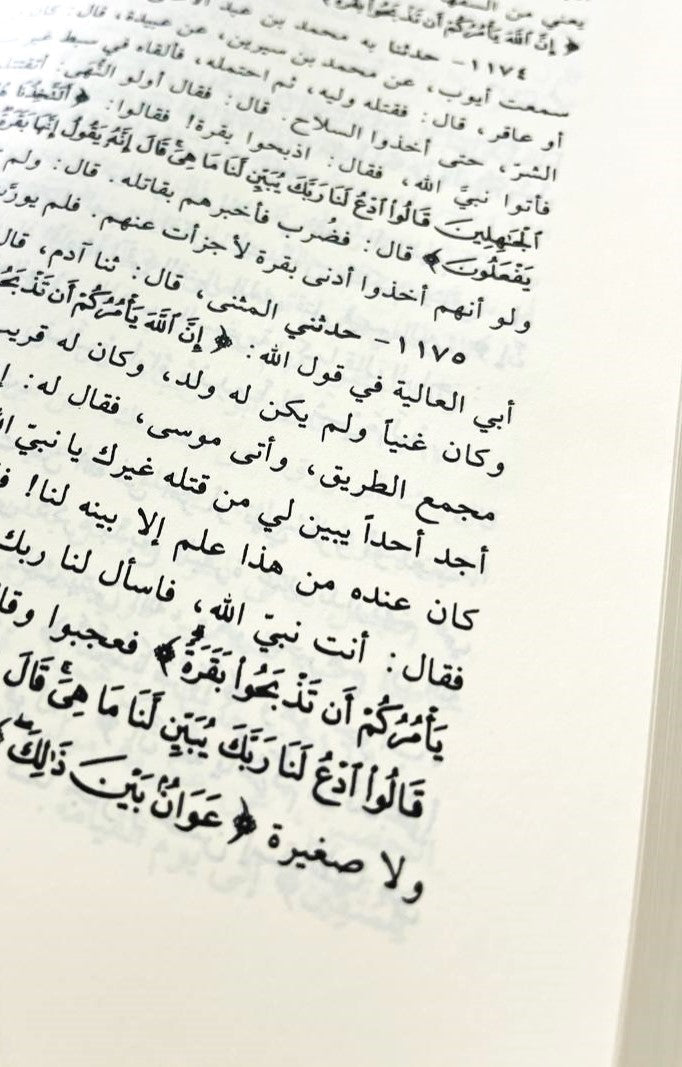 يعني من السفها
﴿ إِنَّ ٱللَّهَ يَأْمُرُكُمْ أَن تَذْبَحُوا۟ بَقَرَةً
١١٧٤- حدثنا به محمد بن عبد
سمعت أيوب، عن محمد بن سيرين، عن عبيدة، قال: كان
أو عاقر، قال: فقتله وليه، ثم احتمله، فألقاه في سبط غير
الشرّ، حتى أخذوا السلاح. قال: فقال أولو النُّهَى: أتقتتلو
فأتوا نبيَّ الله، فقال: اذبحوا بقرة! فقالوا: ﴿ أَتَتَّخِذُنَا
ٱلْجَٰهِلِينَ قَالُوا۟ ٱدْعُ لَنَا رَبَّكَ يُبَيِّن لَّنَا مَا هِىَ قَالَ إِنَّهُۥ يَقُولُ إِنَّهَا بَقَرَةٌ
يَفْعَلُونَ﴾ قال: فضُرب فأخبرهم بقاتله. قال: ولم
ولو أنهم أخذوا أدنى بقرة لأجزأت عنهم. فلم يورَّ
١١٧٥- حدثني المثنى، قال: ثنا آدم، قال
أبي العالية في قول الله: ﴿ إِنَّ ٱللَّهَ يَأْمُرُكُمْ أَن تَذْبَحُ
وكان غنياً ولم يكن له ولد، وكان له قريب
مجمع الطريق، وأتى موسى، فقال له: إ
أجد أحداً يبين لي من قتله غيرك يا نبيّ ال
كان عنده من هذا علم إلا بينه لنا! ف
فقال: أنت نبيّ الله، فاسأل لنا ربك
يَأْمُرُكُمْ أَن تَذْبَحُوا۟ بَقَرَةً﴾ فعجبوا وقا
قَالُوا۟ ٱدْعُ لَنَا رَبَّكَ يُبَيِّن لَّنَا مَا هِىَ قَالَ
ولا صغيرة ﴿ عَوَانٌۢ بَيْنَ ذَٰلِكَ ﴾